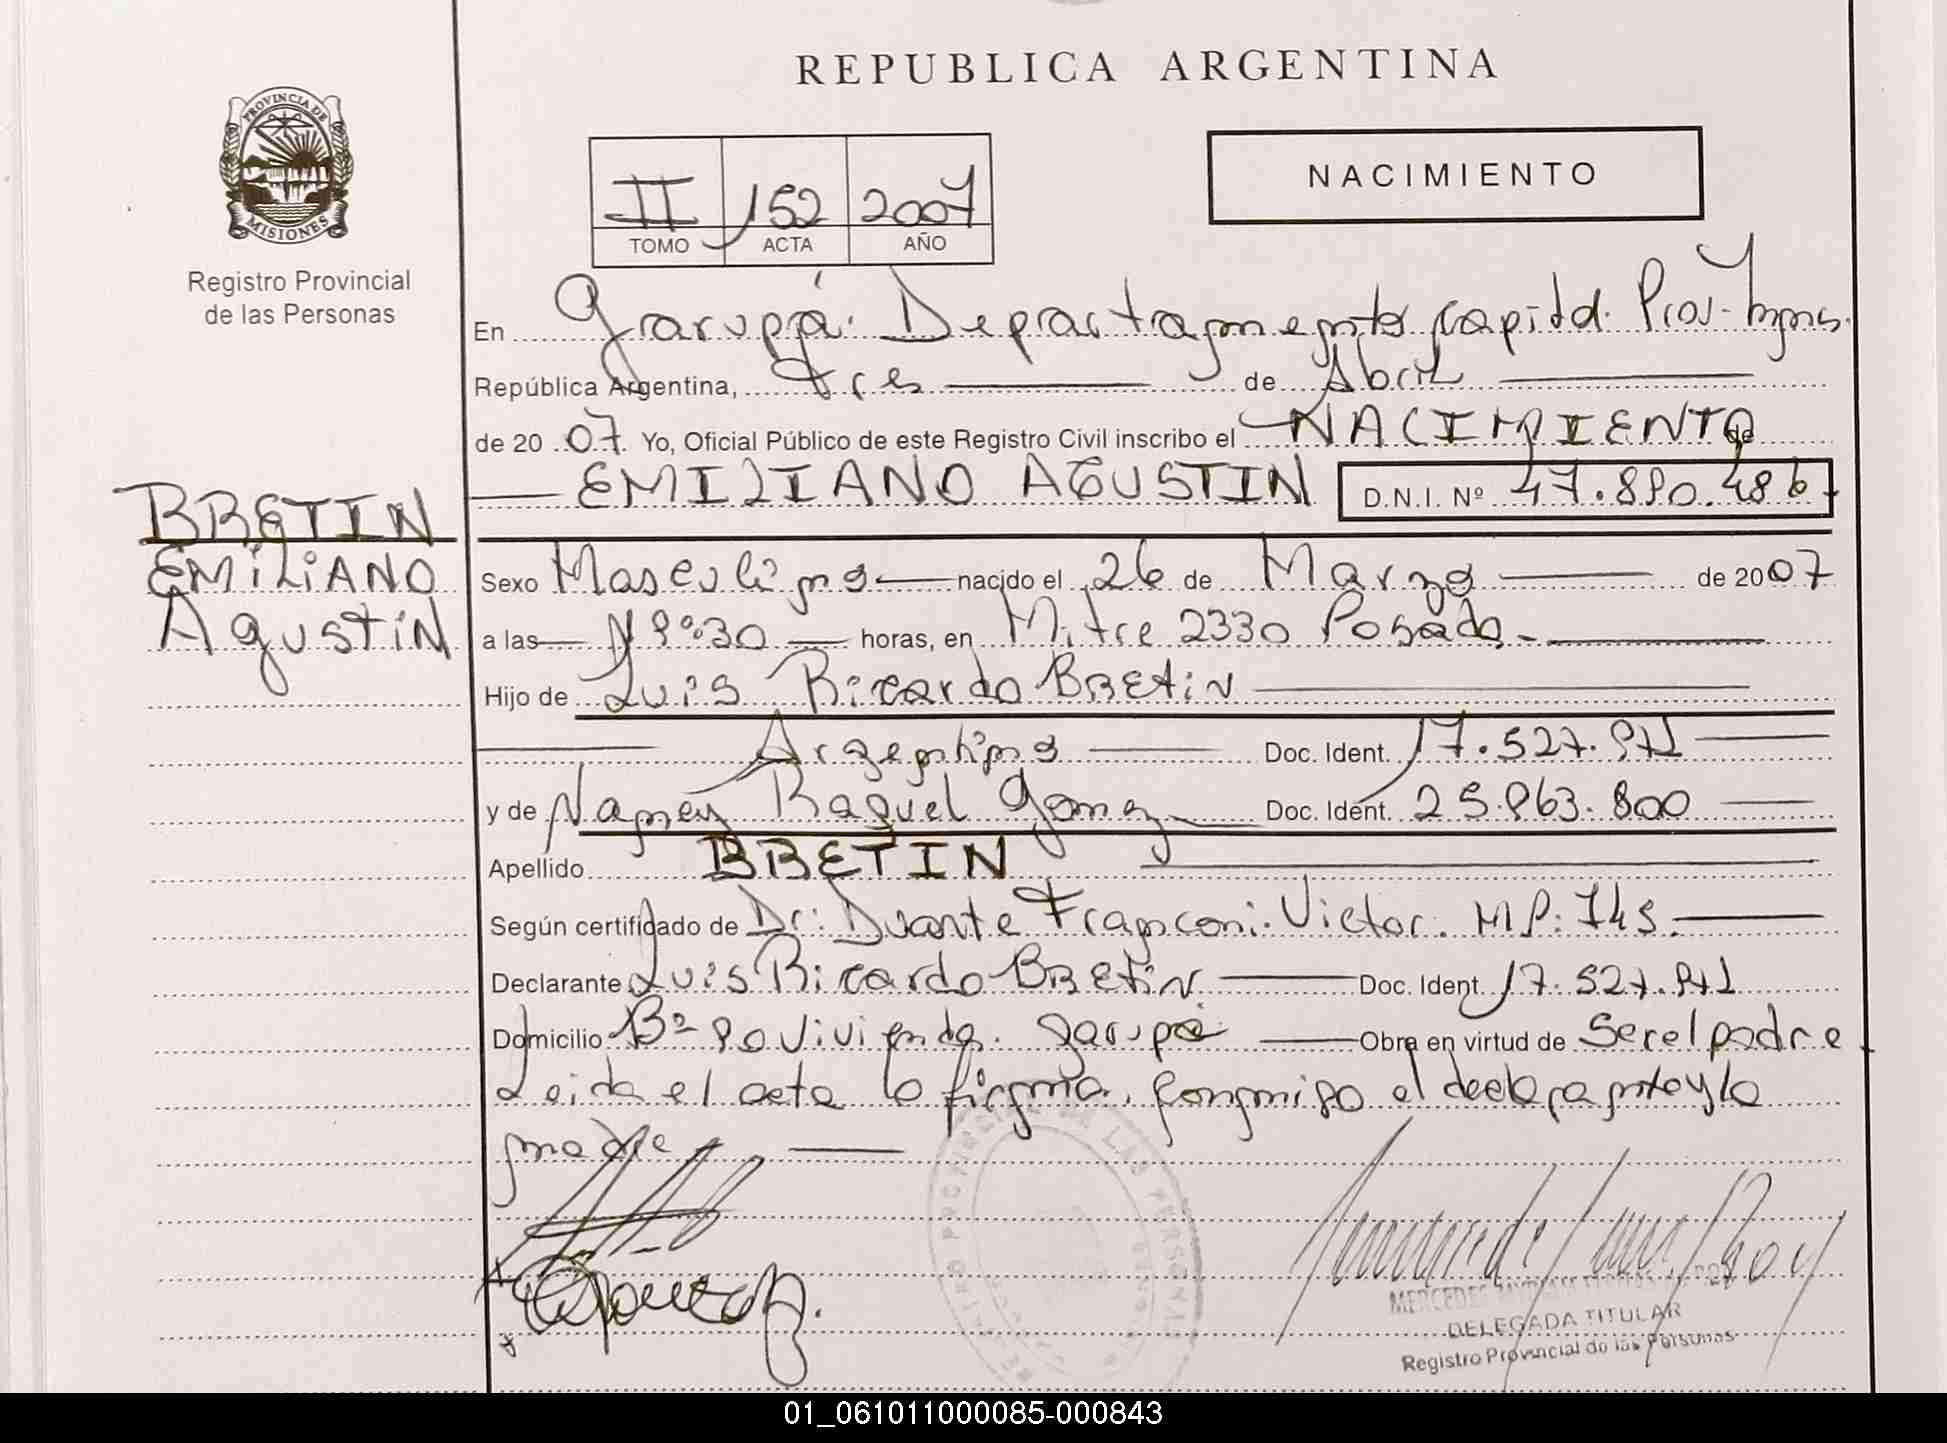 REPUBLICA ARGENTINA
PROVINCIA DE
MISIONES
Registro Provincial
de las Personas
II 152 2007
TOMO ACTA AÑO
NACIMIENTO
En Garupá. Departamento capital. Prov. Mnes.
República Argentina, tres de Abril
de 20 07 Yo, Oficial Público de este Registro Civil inscribo el NACIMIENTO de
EMILIANO AGUSTIN D.N.I. Nº 47.890.486
BRETIN
EMILIANO
AgustiN
Sexo Masculino nacido el 26 de Marzo de 2007
a las horas, en Mitre 2330 Posadas
Hijo de Luis Ricardo BREtiN
Argentino Doc. Ident. 17.527.971
y de Nancy Raquel Gomez Doc. Ident. 25.963.800
Apellido BRETIN
Según certificado de Dr: Duarte Franconi. Victor. MP: 745
Declarante Luis Ricardo BREtiN Doc. Ident 17.527.971
Domicilio Bº 90 Vivienda. garupá Obra en virtud de Ser el padre
Leida el acta la firma, conmigo el declarante y la
madre
REGISTRO PROVINCIAL DE LAS PERSONAS
MERCEDES
DELEGADA TITULAR
Registro Provincial de las Personas
01_061011000085-000843